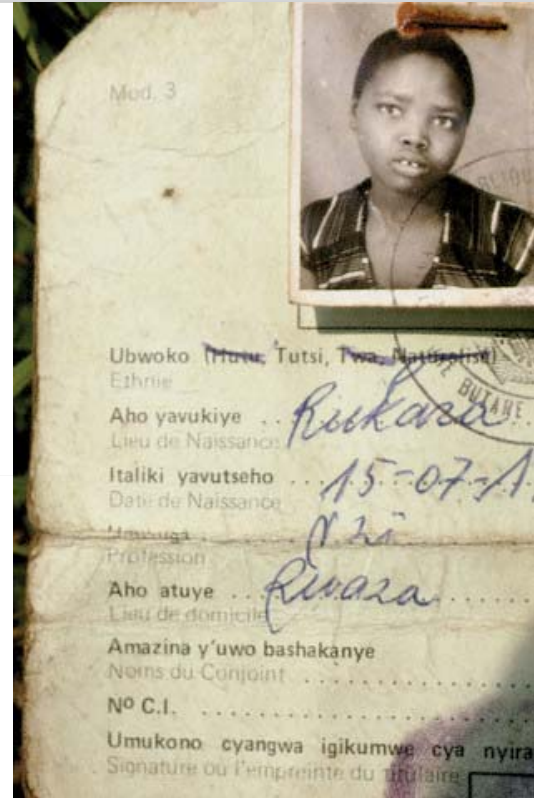 Mod. 3
BUTARE
Ubwoko (Hutu, Tutsi, Twa, Naturalisé)
Ethnie
Aho yavukiye .. Rukara
Lieu de Naissance
Italiki yavutseho ... 15-07-1
Date de Naissance
Umwuga
Profession
Aho atuye ... Rwaza
Lieu de domicile
Amazina y'uwo bashakanye
Noms du Conjoint
Nº C.I.
Umukono cyangwa igikumwe cya nyira
Signature ou l'empreinte du titulaire